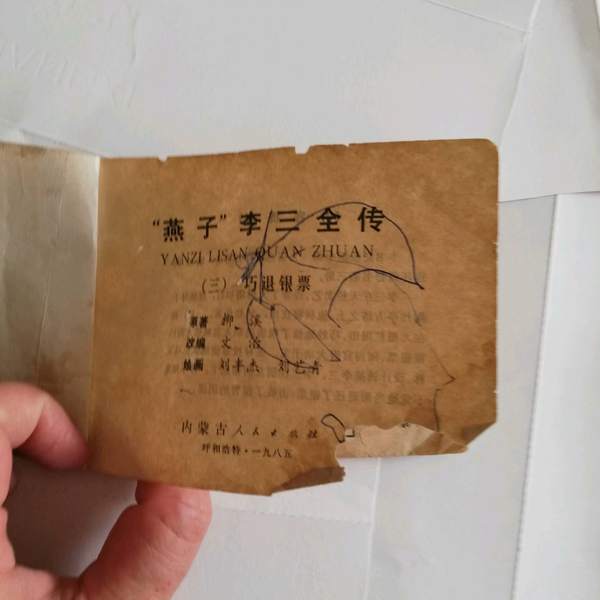 “燕子”李三全传
YANZI LISAN QUAN ZHUAN
(三) 巧退银票
原著 柳溪
改编 文治
绘画 刘丰杰 刘艺青
内蒙古人民出版社
呼和浩特·一九八五